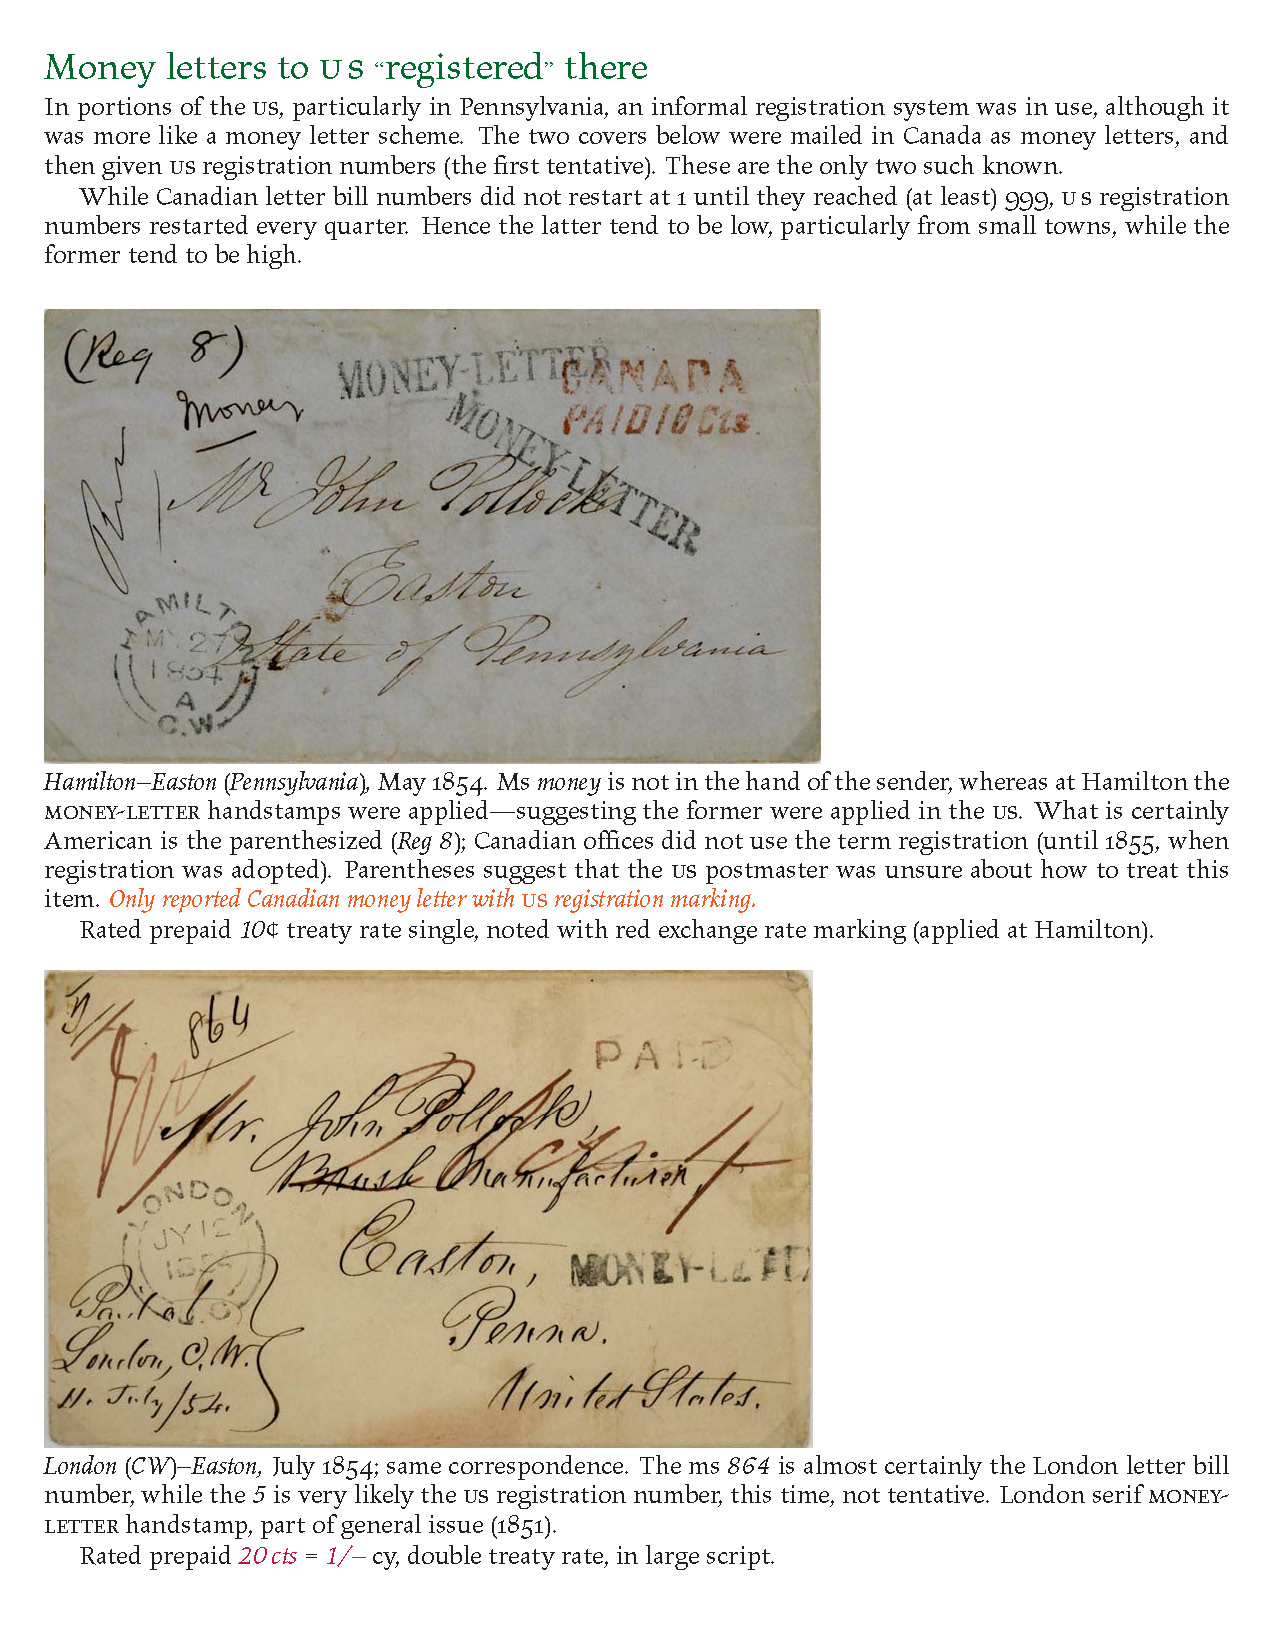 Money letters to US “registered” there
In portions of the US, particularly in Pennsylvania, an informal registration system was in use, although it
was more like a money letter scheme. The two covers below were mailed in Canada as money letters, and
then given US registration numbers (the first tentative). These are the only two such known.
While Canadian letter bill numbers did not restart at 1 until they reached (at least) 999, US registration
numbers restarted every quarter. Hence the latter tend to be low, particularly from small towns, while the
former tend to be high.
(Reg 8)
MONEY-LETTER
CANADA
PAID 10 Cts.
Money
MONEY-LETTER
Mr John Pollock
Easton
State of Pennsylvania
HAMILT
MY 27
1854
A
C.W.
Hamilton–Easton (Pennsylvania), May 1854. Ms money is not in the hand of the sender, whereas at Hamilton the
MONEY-LETTER handstamps were applied—suggesting the former were applied in the US. What is certainly
American is the parenthesized (Reg 8); Canadian offices did not use the term registration (until 1855, when
registration was adopted). Parentheses suggest that the US postmaster was unsure about how to treat this
item. Only reported Canadian money letter with US registration marking.
Rated prepaid 10¢ treaty rate single, noted with red exchange rate marking (applied at Hamilton).
864
PAID
Mr. John Pollock,
Brush Manufacturer,
LONDON
JY 12
1854
Easton,
MONEY-LETTE
Penna.
United States.
Paid at
London, C.W.
11. July/54.
London (CW)–Easton, July 1854; same correspondence. The ms 864 is almost certainly the London letter bill
number, while the 5 is very likely the US registration number, this time, not tentative. London serif MONEY-
LETTER handstamp, part of general issue (1851).
Rated prepaid 20 cts = 1/– cy, double treaty rate, in large script.